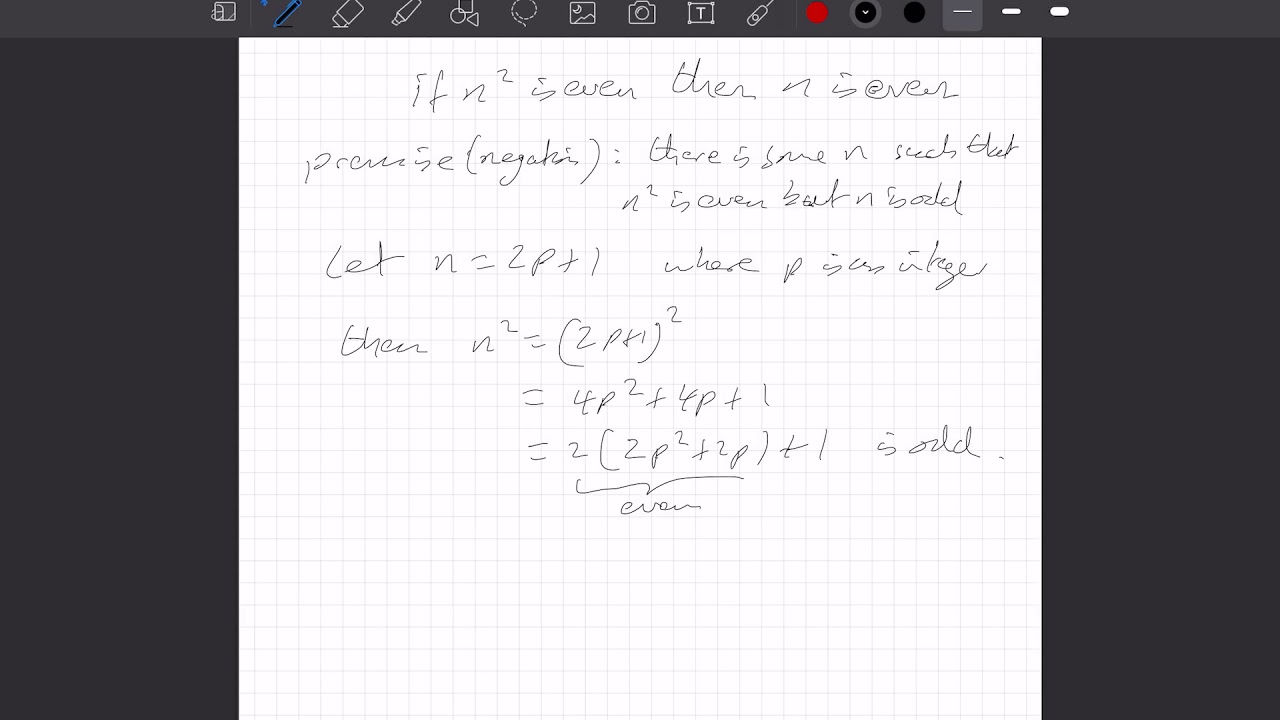 if n² is even then n is even
premise (negation): there is some n such that
n² is even but n is odd
Let n = 2p+1 where p is an integer
then n² = (2p+1)²
= 4p² + 4p + 1
= 2(2p² + 2p) + 1 is odd.
even